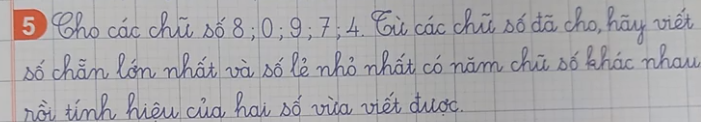 5 Cho các chữ số 8; 0; 9; 7; 4. Từ các chữ số đã cho, hãy viết
số chẵn lớn nhất và số lẻ nhỏ nhất có năm chữ số khác nhau
rồi tính hiệu của hai số vừa viết được.